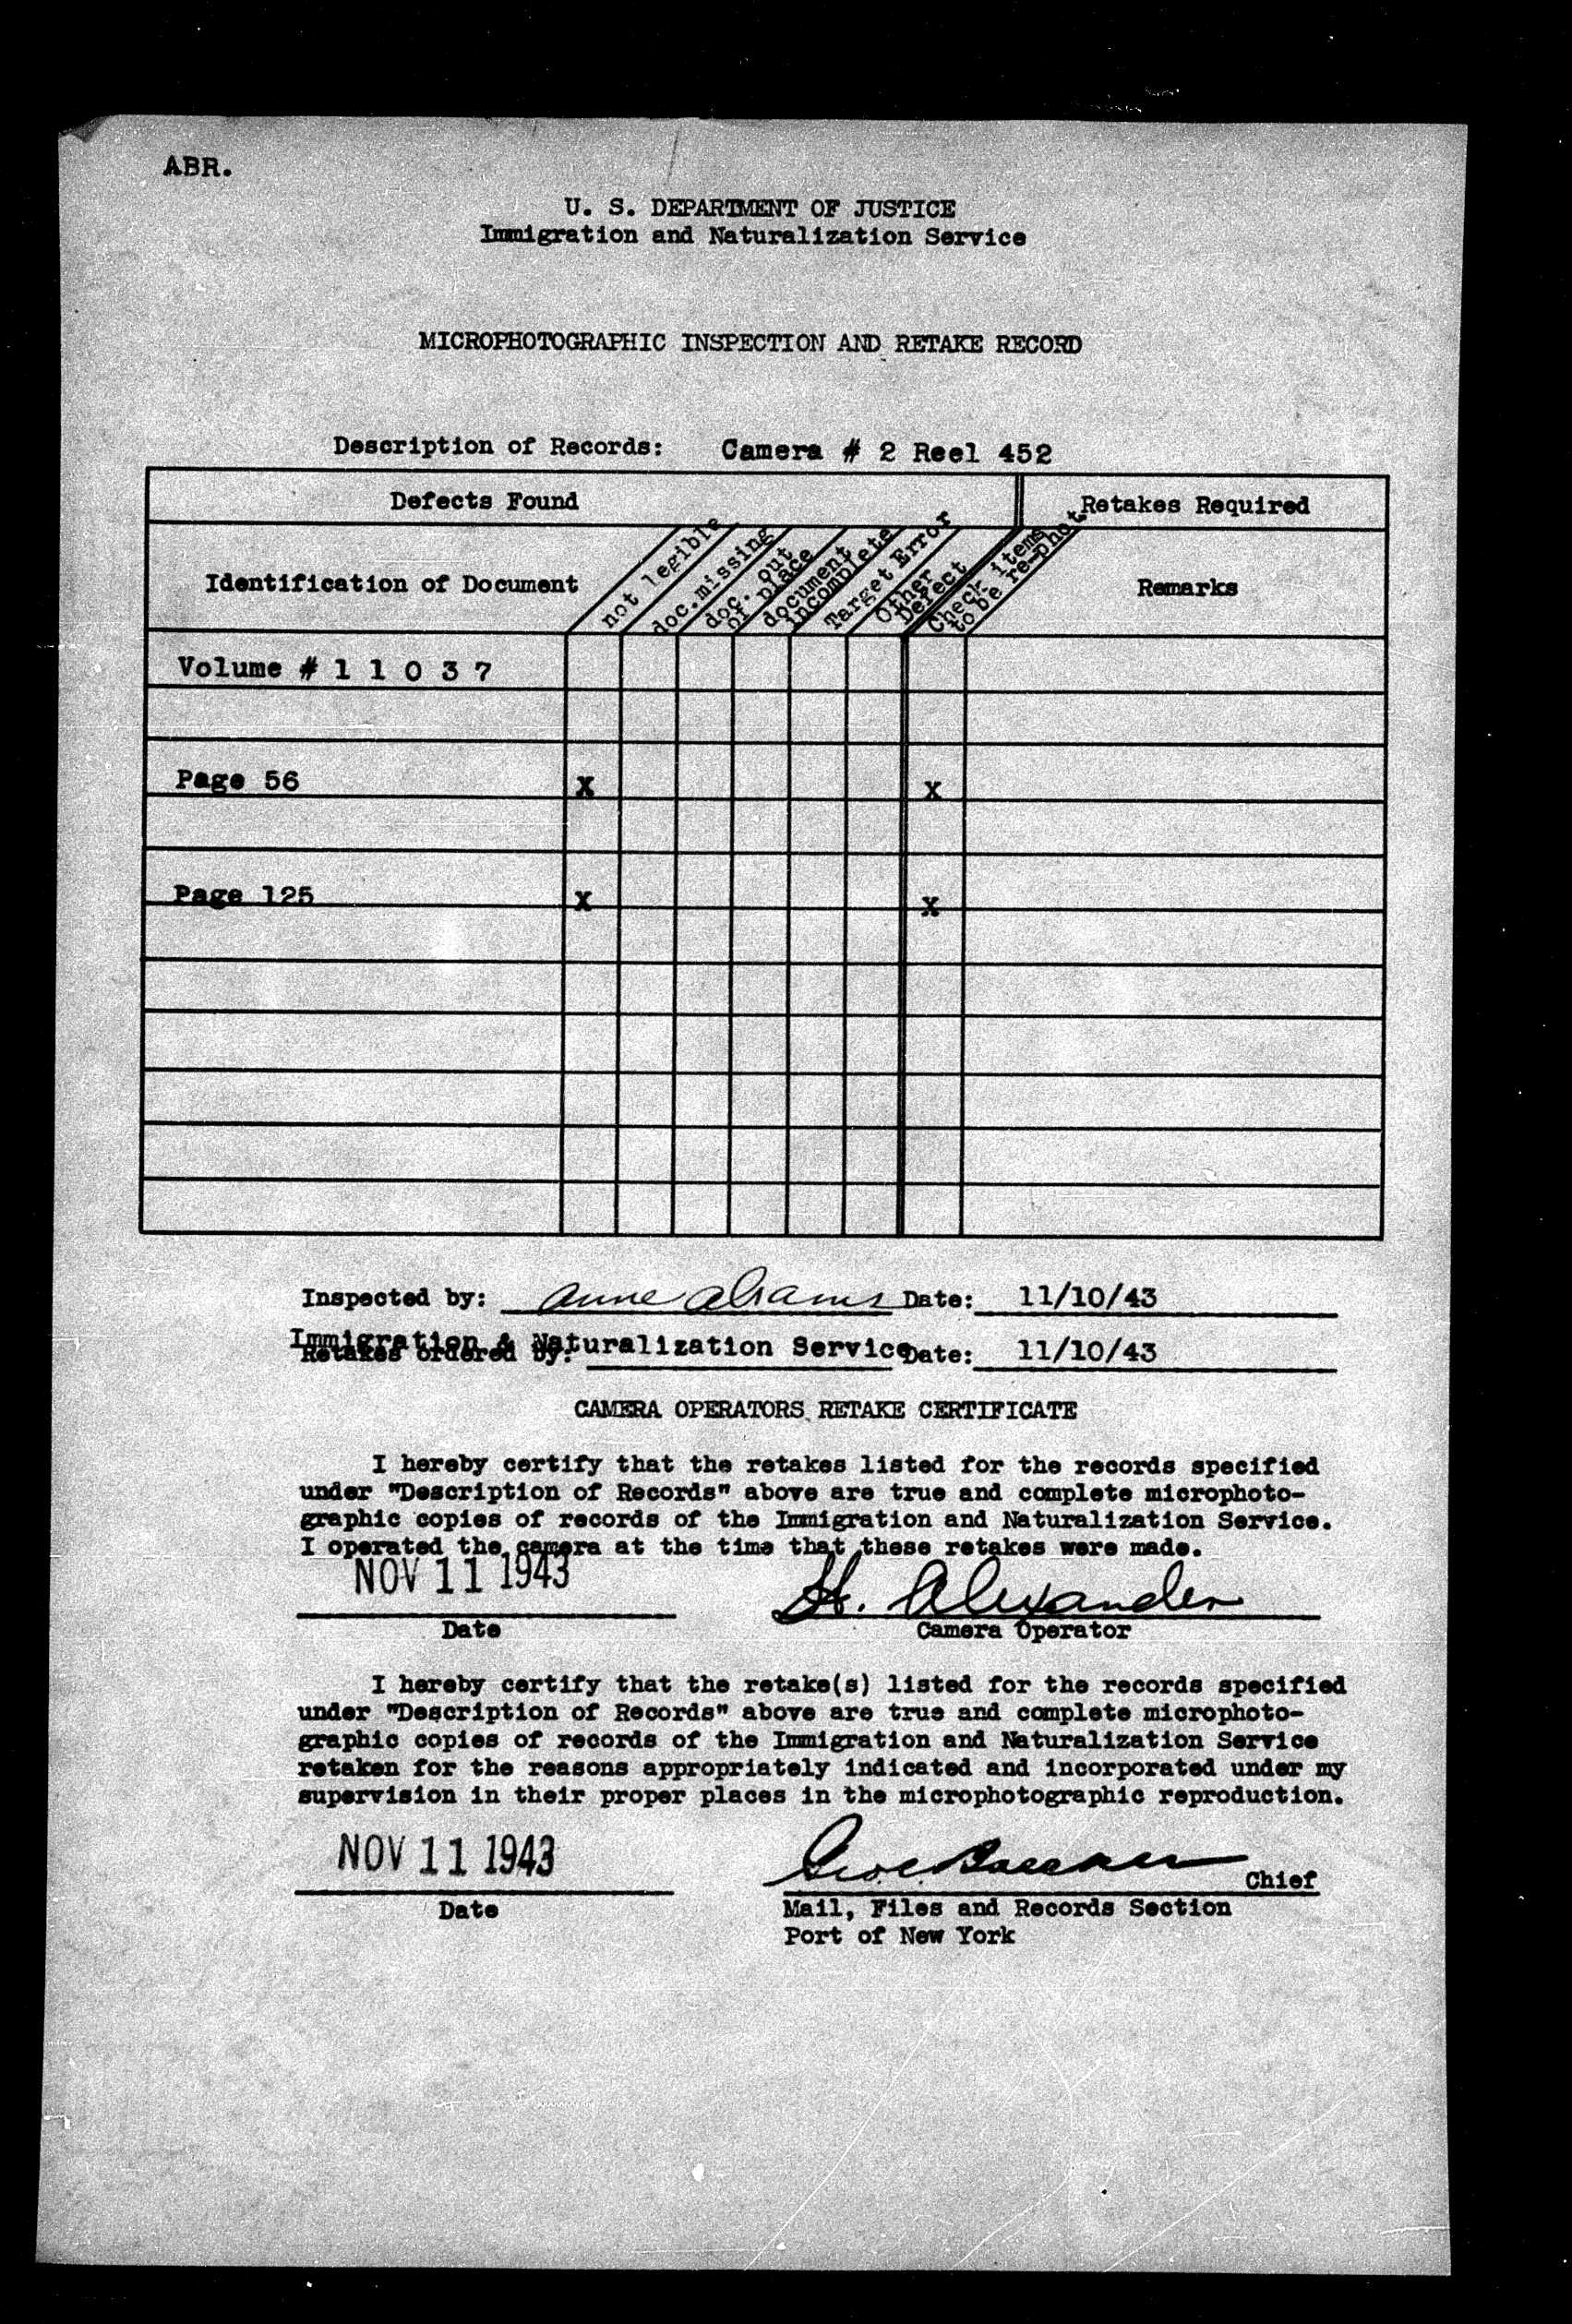 ABR.
U. S. DEPARTMENT OF JUSTICE
Immigration and Naturalization Service
MICROPHOTOGRAPHIC INSPECTION AND RETAKE RECORD
Description of Records: Camera # 2 Reel 452
Defects Found
Retakes Required
Identification of Document
not legible
doc. missing
doc. out
of place
document
incomplete
Target Error
Other
Defect
Check items
to be re-phot.
Remarks
Volume # 1 1 0 3 7
Page 56 X X
Page 125 X X
Inspected by: Anne Abrams Date: 11/10/43
Immigration & Naturalization Service
Retakes ordered by: Date: 11/10/43
CAMERA OPERATORS RETAKE CERTIFICATE
I hereby certify that the retakes listed for the records specified
under "Description of Records" above are true and complete microphoto-
graphic copies of records of the Immigration and Naturalization Service.
I operated the camera at the time that these retakes were made.
NOV 11 1943 H. Alexander
Date Camera Operator
I hereby certify that the retake(s) listed for the records specified
under "Description of Records" above are true and complete microphoto-
graphic copies of records of the Immigration and Naturalization Service
retaken for the reasons appropriately indicated and incorporated under my
supervision in their proper places in the microphotographic reproduction.
NOV 11 1943 Chief
Date Mail, Files and Records Section
Port of New York